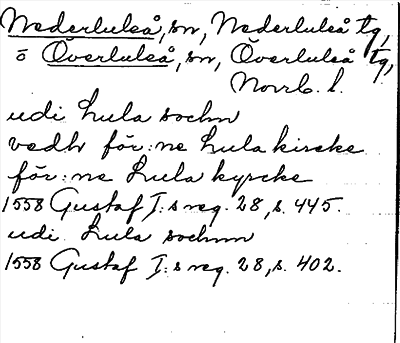 Nederluleå, sn, Nederluleå tg,
o Överluleå, sn, Överluleå tg,
Norrb. l.
udi Lula sochn
vedh för:ne Lula kircke
för:ne Lula kyrcke
1558 Gustaf I:s reg. 28, s. 445.
udi Lula sochnn
1558 Gustaf I:s reg. 28, s. 402.